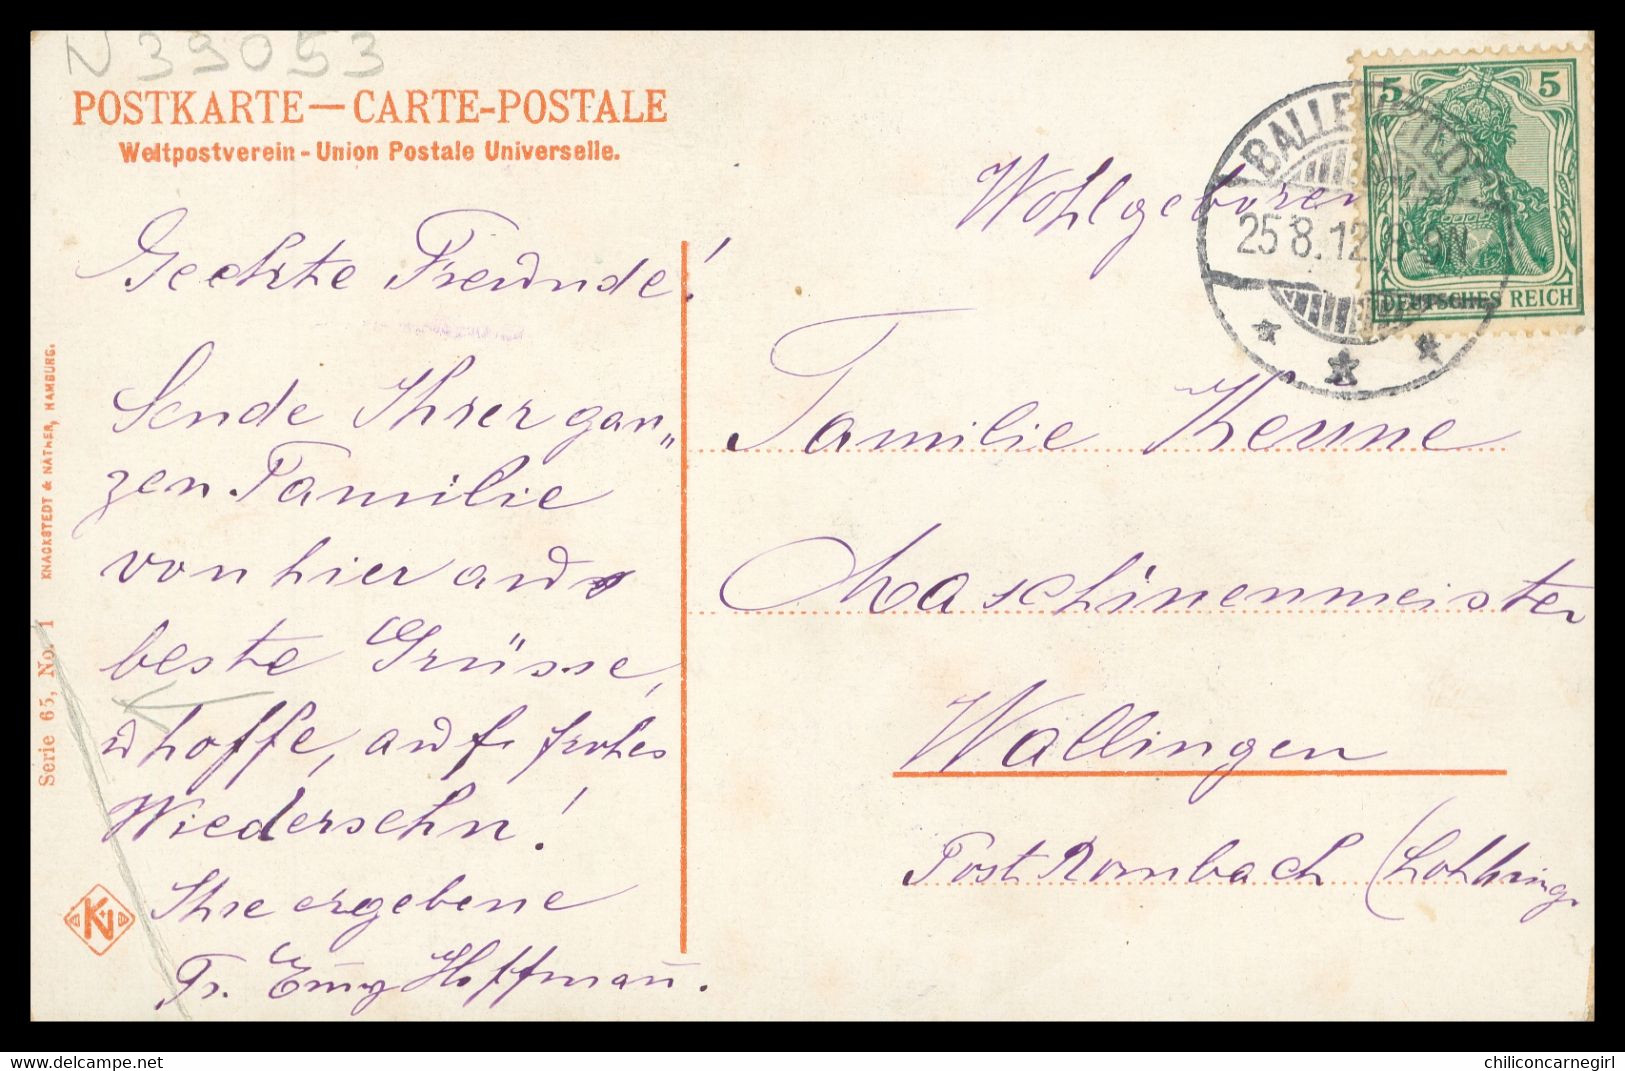 N 39053
POSTKARTE — CARTE-POSTALE
Weltpostverein - Union Postale Universelle.
Geehrte Freunde!
Sende Ihrer gan„
zen Familie
von hier aus
beste Grüsse,
u hoffe, auf frohes
Wiedersehn!
Ihre ergebene
Fr. Emy Hoffmann.
Serie 65, No. 1 KNACKSTEDT & NÄTHER, HAMBURG.
KN
5 5
DEUTSCHES REICH
BALLENSTEDT
25.8.12. 8-9N
Wohlgeboren
Familie Keune
Maschinenmeister
Wallingen
Post Rombach (Lothring.
delcampe.net
chiliconcarnegirl